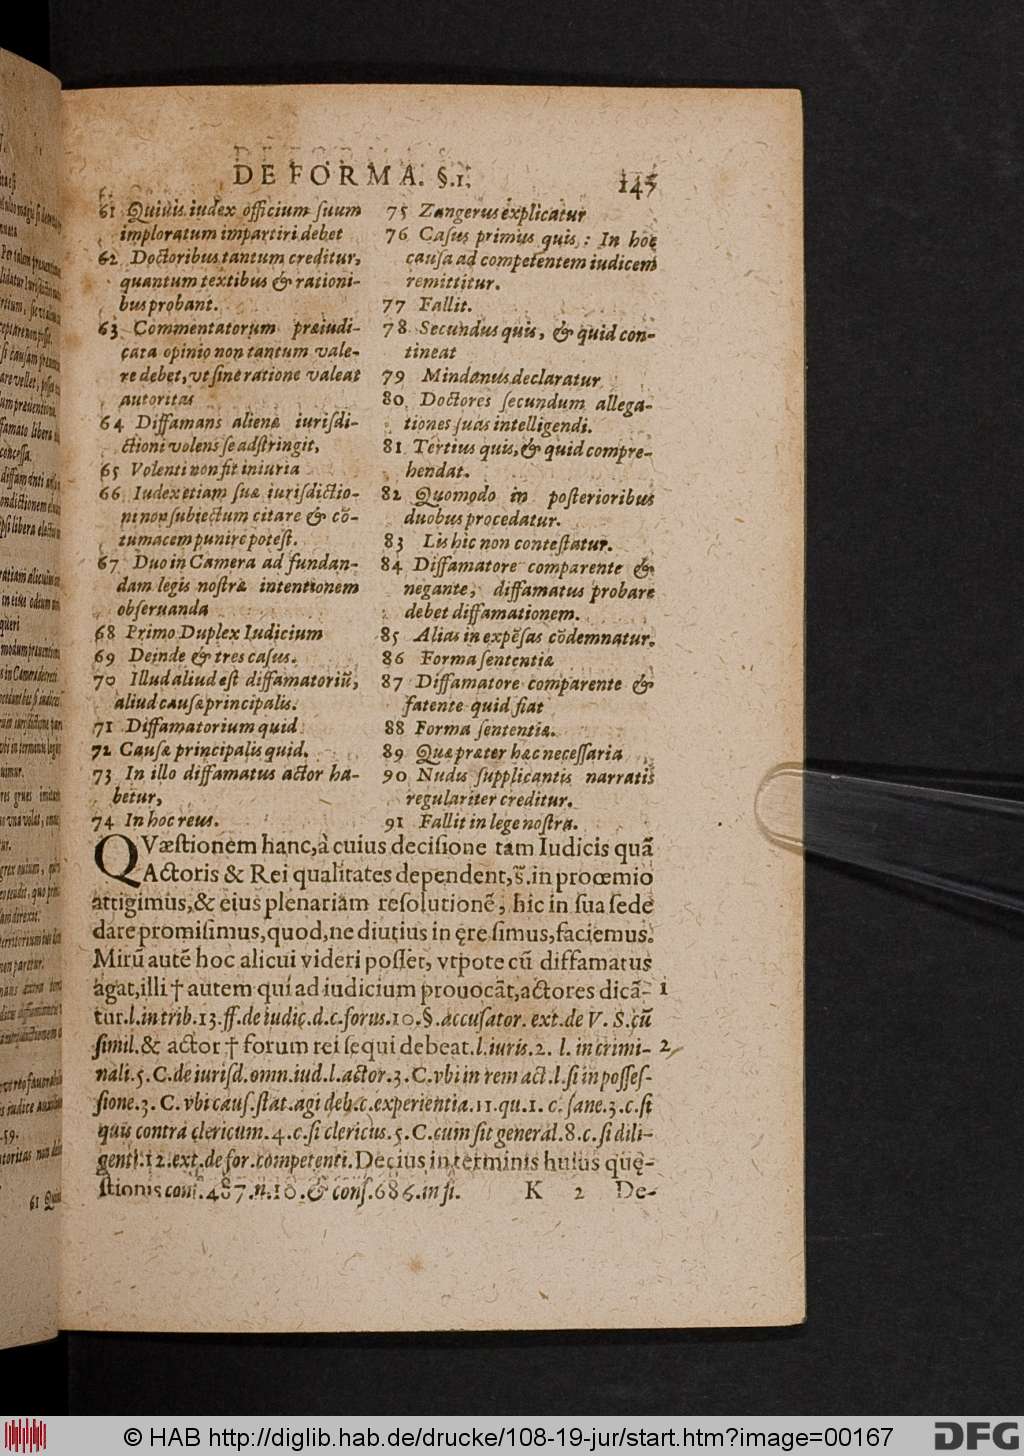 DE FORMA. §.1. 145
61 Quiuis iudex officium suum
imploratum impartiri debet
62 Doctoribus tantum creditur,
quantum textibus & rationi-
bus probant.
63 Commentatorum præiudi-
cata opinio non tantum vale-
re debet, vt sine ratione valeat
autoritas
64 Diffamans alienæ iurisdi-
ctioni volens se adstringit,
65 Volenti non fit iniuria
66 Iudex etiam suæ iurisdictio-
ni non subiectum citare & cõ-
tumacem punire potest.
67 Duo in Camera ad fundan-
dam legis nostræ intentionem
obseruanda
68 Primo Duplex Iudicium
69 Deinde & tres casus.
70 Illud aliud est diffamatoriũ,
aliud causæ principalis.
71 Diffamatorium quid
72 Causæ principalis quid.
73 In illo diffamatus actor ha-
betur,
74 In hoc reus.
75 Zangerus explicatur
76 Casus primus quis: In hoc
causa ad competentem iudicem
remittitur.
77 Fallit.
78 Secundus quis, & quid con-
tineat
79 Mindanus declaratur
80 Doctores secundum allega-
tiones suas intelligendi.
81 Tertius quis, & quid compre-
hendat.
82 Quomodo in posterioribus
duobus procedatur.
83 Lis hic non contestatur.
84 Diffamatore comparente &
negante, diffamatus probare
debet diffamationem.
85 Alias in expẽsas cõdemnatur.
86 Forma sententiæ
87 Diffamatore comparente &
fatente quid fiat
88 Forma sententiæ.
89 Quæ præter hæc necessaria
90 Nudis supplicantis narratis
regulariter creditur.
91 Fallit in lege nostra.
QVæstionem hanc, à cuius decisione tam Iudicis quã
Actoris & Rei qualitates dependent, s. in proœmio
attigimus, & eius plenariam resolutionẽ, hic in sua sede
dare promisimus, quod, ne diutius in ęre simus, faciemus.
Mirũ autẽ hoc alicui videri posset, vtpote cũ diffamatus
agat, illi † autem qui ad iudicium prouocãt, actores dicã- 1
tur. l. in trib. 13. ff. de iudic. d. c. forus. 10. §. accusator. ext. de V. S. cũ
simil. & actor † forum rei sequi debeat. l. iuris. 2. l. in crimi- 2
nali. 5. C. de iurisd. omn. iud. l. actor. 3. C. vbi in rem act. l. si in posses-
sione. 3. C. vbi caus. stat. agi deb. c. experientia. 11. qu. 1. c. sane. 3. c. si
quis contra clericum. 4. c. si clericus. 5. C. cum sit general. 8. c. si dili-
genti. 12. ext. de for. competenti. Decius in terminis huius quę-
stionis cons. 487. n. 10. & cons. 686. in fi. K 2 De-
61
© HAB http://diglib.hab.de/drucke/108-19-jur/start.htm?image=00167
DFG